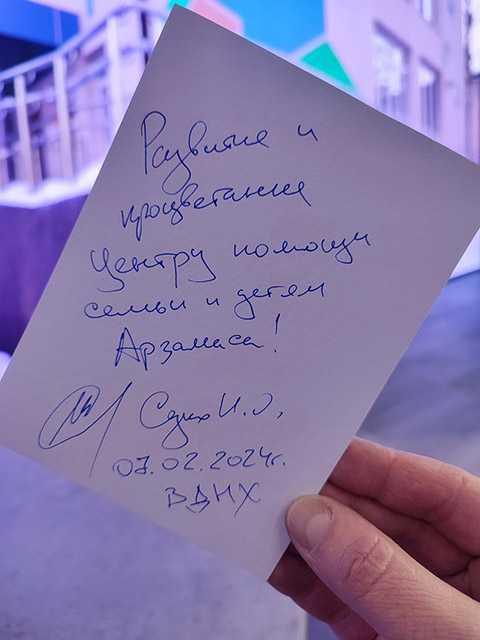 Развития и
процветания
Центру помощи
семьи и детям
Арзамаса!
И.О,
07.02.2024г.
ВДНХ